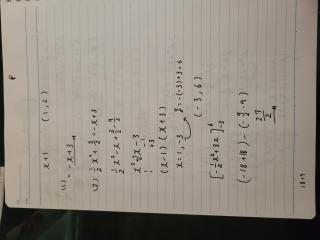 P
x+1 (1,2)
(1) = -x+3
(2) ½x²+3/2=-x+3
½x²-x+3/2-9/2
x²+2x-3
(x-1)(x+3)
x=1,-3 y=-(-3)+3=6
(-3,6)
[-½x²+3x]
(-18+18)-(-9/2-9)
27/2
18+9